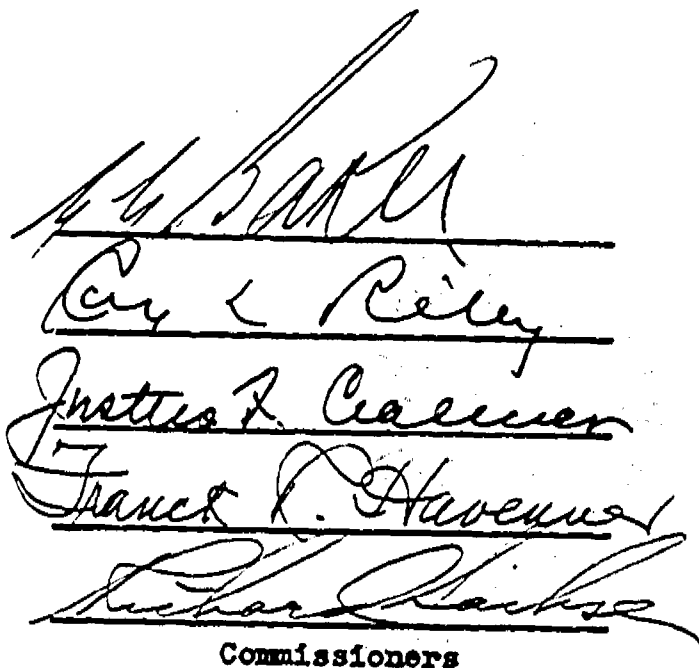 Baker
Ray L Riley
Justus F. Craemer
Franck R. Havenner
Richard Sachse
Commissioners